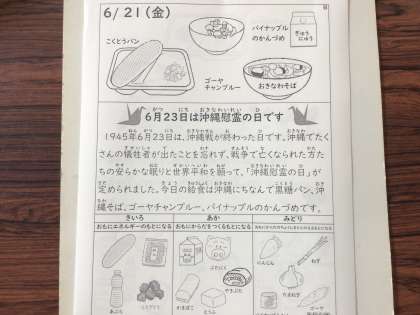 6/21(金)
こくとうパン
パイナップルのかんづめ
ぎゅうにゅう
ゴーヤチャンプルー
おきなわそば
6月23日は沖縄慰霊の日です
1945年6月23日は、沖縄戦が終わった日です。沖縄でたく
さんの犠牲者が出たことを忘れず、戦争で亡くなられた方た
ちの安らかな眠りと世界平和を願って、「沖縄慰霊の日」が
定められました。今日の給食は沖縄にちなんで黒糖パン、沖
縄そば、ゴーヤチャンプルー、パイナップルのかんづめです。
きいろ あか みどり
おもにエネルギーのもとになる おもにからだをつくるもとになる
ぶたにく
にんじん
ねぎ
やきぶた
あぶら
かまぼこ
とうふ
たまねぎ
ゴーヤ